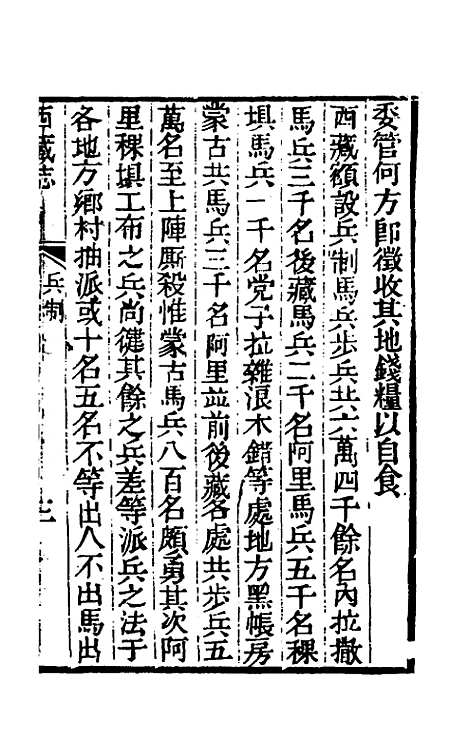 委管何方卽徵收其地錢糧以自食
西藏額設兵制馬兵步兵共六萬四千餘名內拉撒
馬兵三千名後藏馬兵二千名阿里馬兵五千名稞
埧馬兵一千名党子拉雜浪木錯等處地方黑帳房
蒙古共馬兵三千名阿里並前後藏各處共步兵五
萬名至上陣厮殺惟蒙古馬兵八百名頗勇其次阿
里稞埧工布之兵尚健其餘之兵差等派兵之法于
各地方鄉村抽派或十名五名不等出人不出馬出
西藏志
兵制